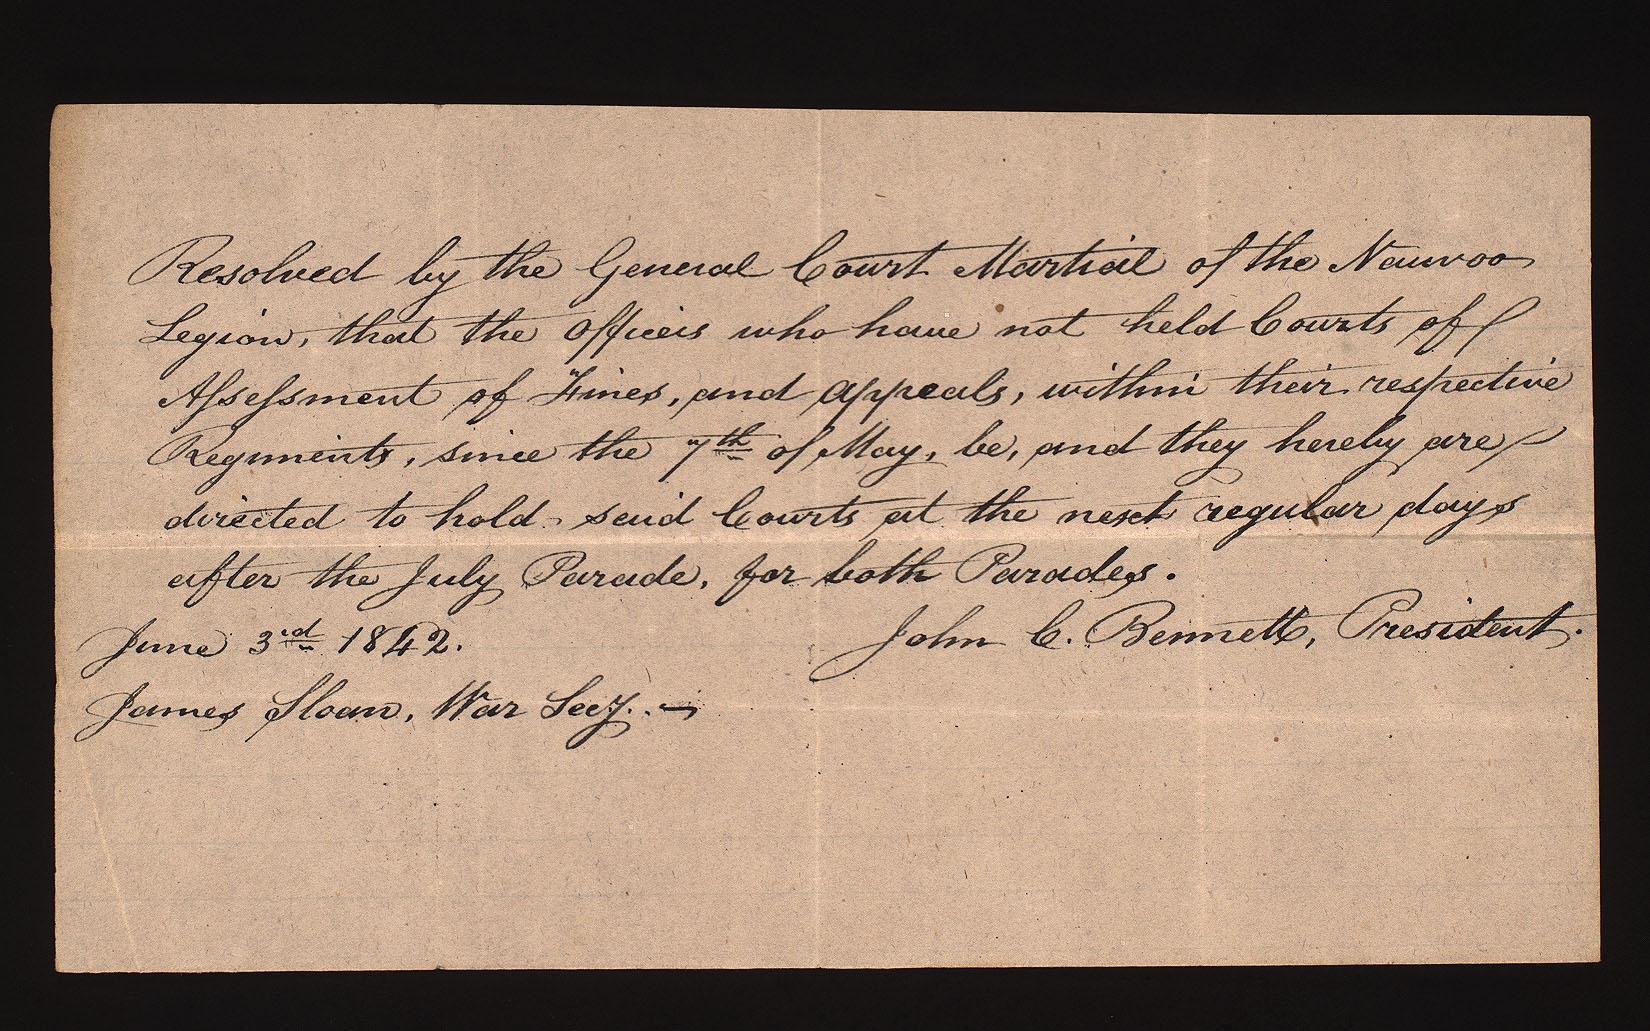 Resolved by the General Court Martial of the Nauvoo
Legion, that the Officers who have not held Courts of
Assessment of Fines, and appeals, within their respective
Regiments, since the 7th of May, be, and they hereby are
directed to hold said Courts at the next regular days
after the July Parade, for both Parades.
June 3rd 1842. John C. Bennett, President.
James Sloan, War Secy.